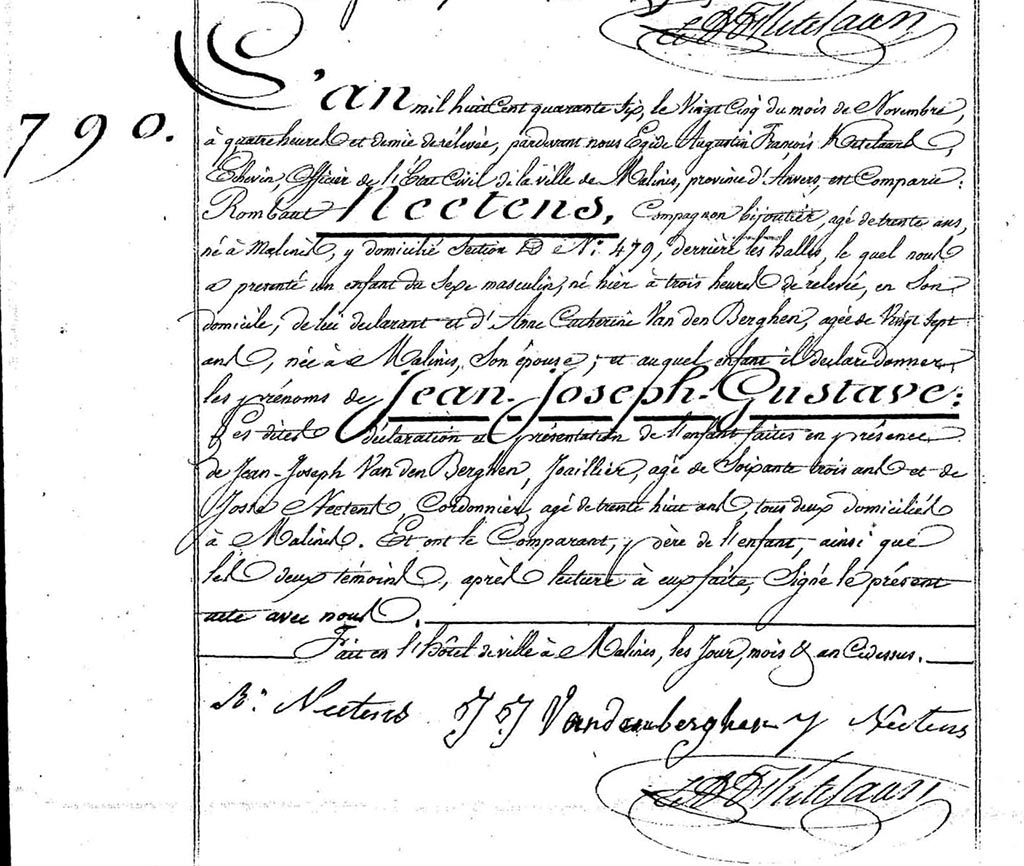 E. A. F. Ketelaars
790.
L'an mil huit Cent quarante six, le Vingt Cinq du mois de Novembre,
à quatre heures et demie de relevée, pardevant nous Egide Augustin François Ketelaars,
Echevin, Officier de l'Etat Civil de la ville de Malines, province d'Anvers, est Comparu:
Rombaut Neetens, Compagnon bijoutier, agé de trente ans,
né à Malines, y domicilié Section D N° 479, derrière les halles, le quel nous
a presenté un enfant du Sexe masculin, né hier à trois heures de relevée, en Son
domicile, de lui declarant et d'Anne Catherine Van den Berghen, agée de Vingt Sept
ans, née à Malines, Son épouse; et auquel enfant il declare donner
les prénoms de Jean-Joseph-Gustave:
Les dites déclaration et présentation de l'enfant faites en présence
de Jean-Joseph Van den Berghen, Joaillier, agé de Soixante trois ans et de
Josse Neetens, Cordonnier, agé de trente huit ans, tous deux domiciliés
à Malines. Et ont le Comparant, père de l'enfant, ainsi que
les deux témoins, après lecture à eux faite, Signé le présent
acte avec nous.
Fait en l'hôtel de ville à Malines, les Jour, mois & an Cidessus.
R. Neetens J J Vandenberghen J Neetens
E. A. F. Ketelaars